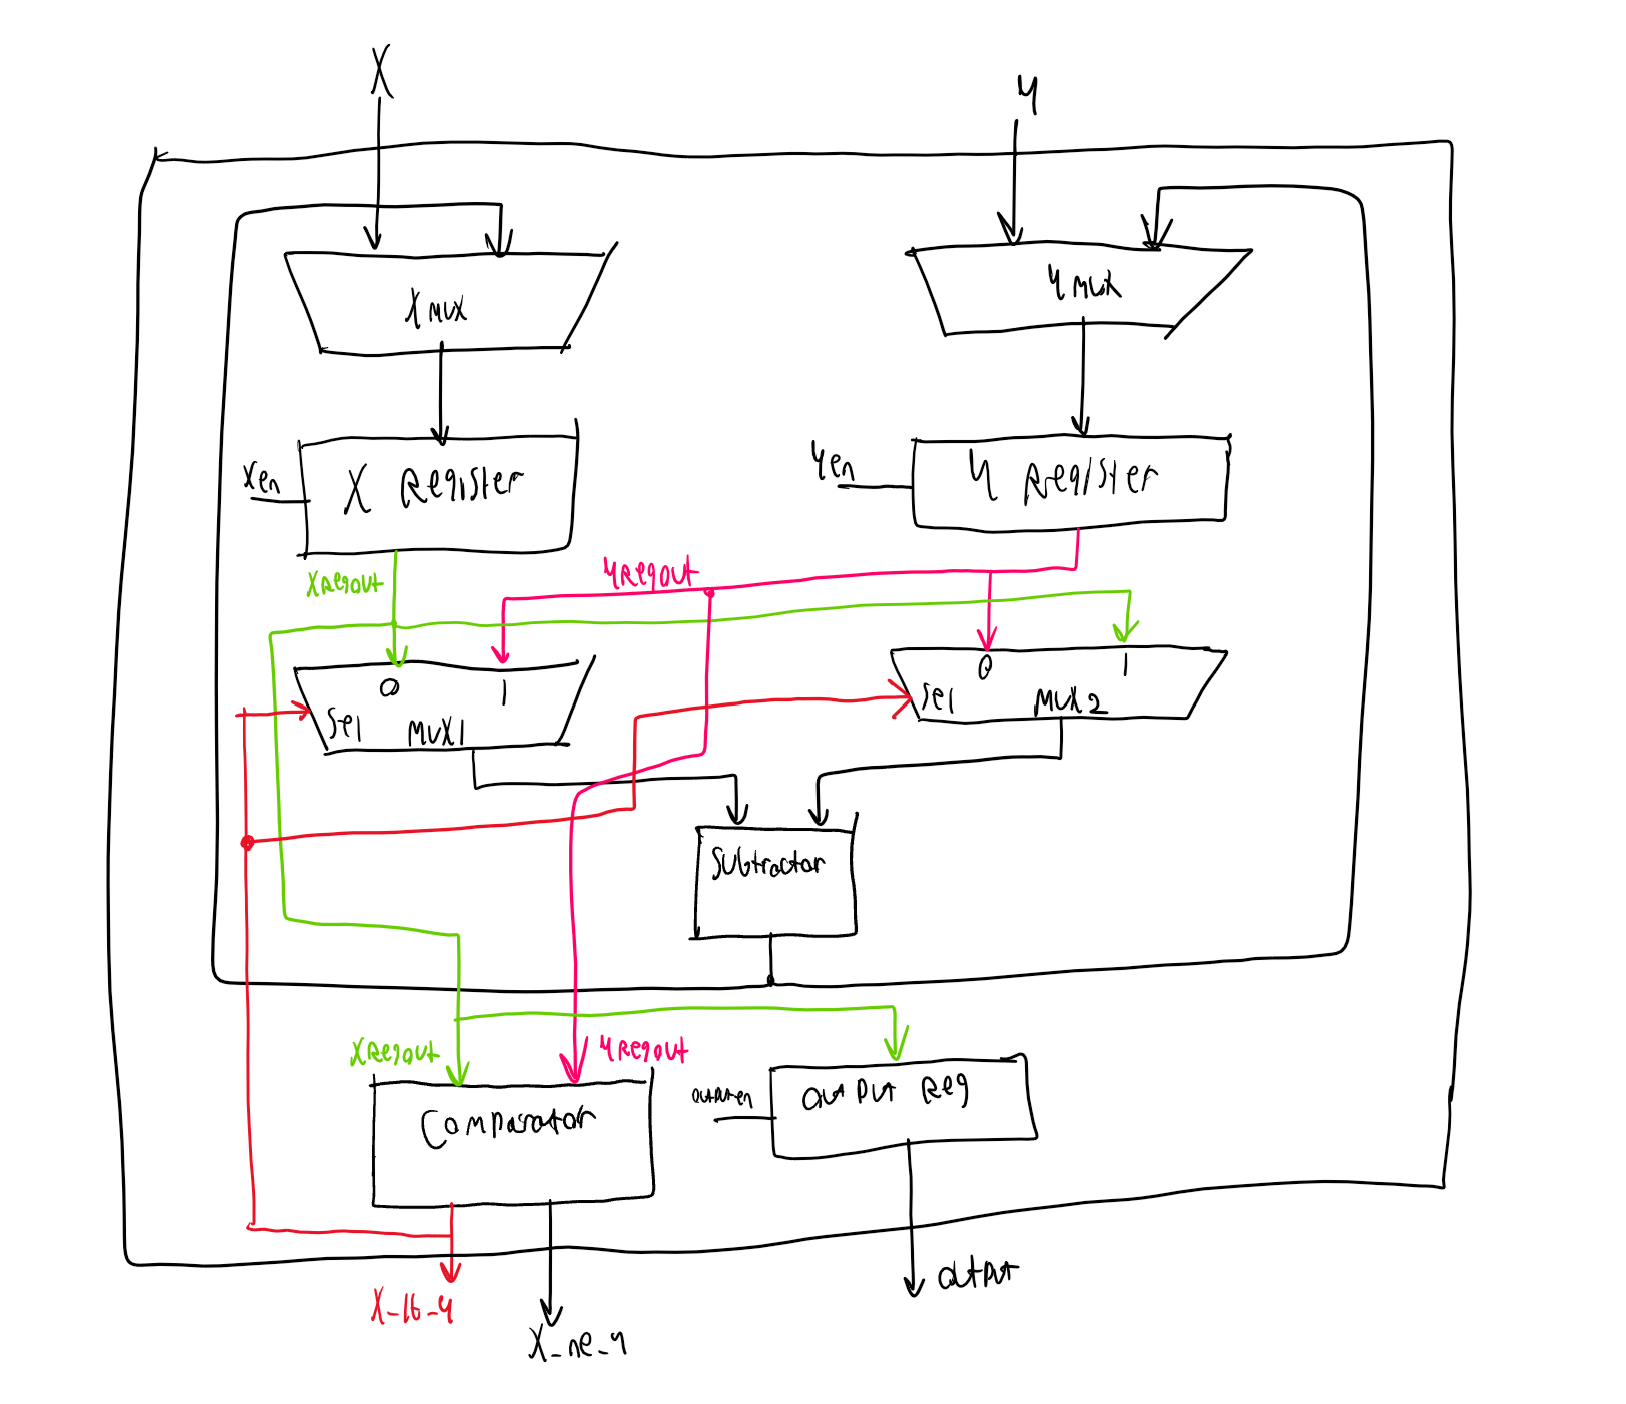 X
y
X mux
y mux
Xen
X Register
yen
y Register
XRegout
yRegout
0 1
Sel MUX1
0 1
Sel MUX2
Subtractor
XRegout
yRegout
Comparator
outputen
output Reg
X_lt_y
X_ne_y
output